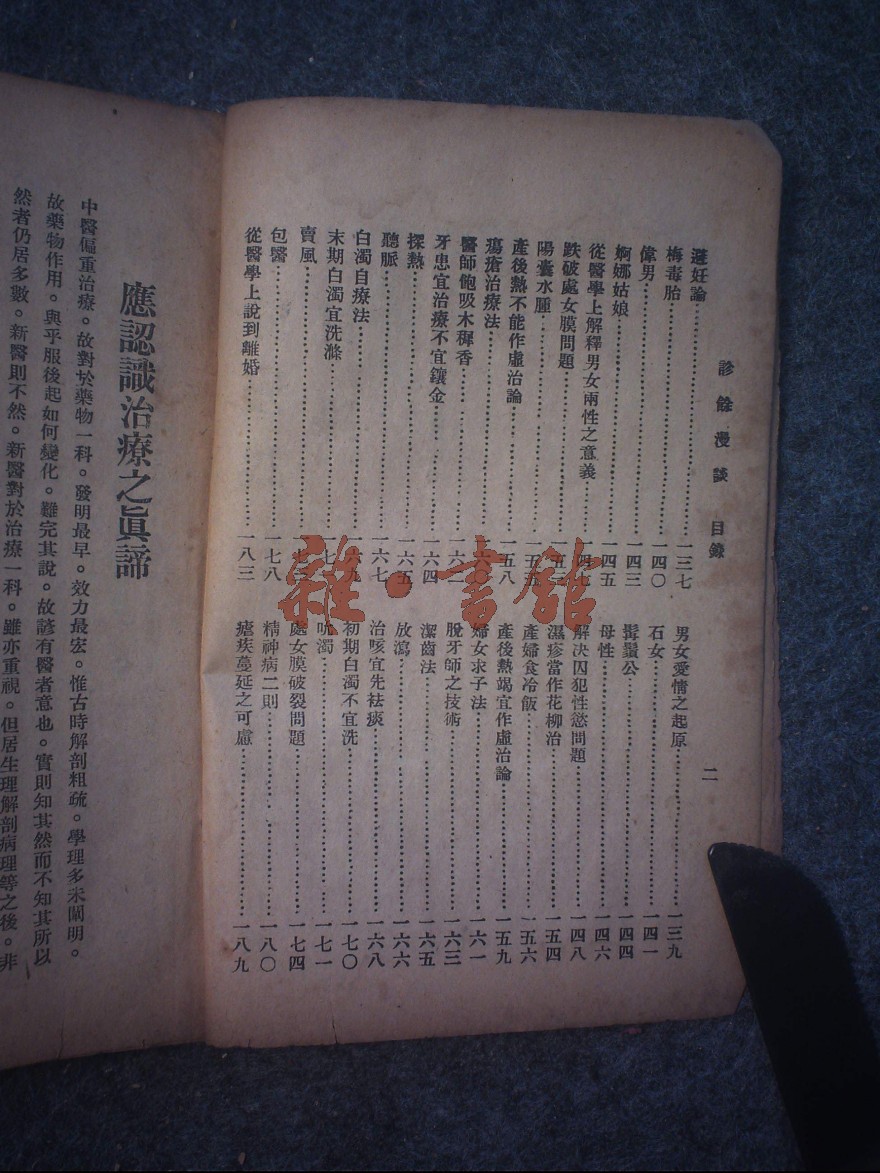 診餘漫談 目錄 二
避妊論……一三七 男女愛情之起原……一三九
梅毒胎……一四〇 石女……一四一
偉男……一四三 髯鬚公……一四四
婀娜姑娘……一四五 母性……一四六
從醫學上解釋男女兩性之意義……一四七 解決囚犯性慾問題……一四八
跌破處女膜問題……一五 濕疹當作花柳治……一五四
陽囊水腫……一五五 產婦食冷飯……一五六
產後熱不能作虛治論……一五八 產後熱竭宜作虛治論……一五九
瘍瘡治療法……一六〇 婦女求子法……一六一
醫師飽吸木樨香……一六二 脫牙師之技術……一六三
牙患宜治療不宜鑲金……一六四 潔齒法……一六五
探熱……一六五 放瀉……一六六
聽脈……一六七 治咳宜先祛痰……一六八
白濁自療法……一六九 初期白濁不宜洗……一七〇
末期白濁宜洗滌……一七 吮濁……一七一
賣風……一七 處女膜破裂問題……一七四
包醫……一七八 精神病二則……一八〇
從醫學上說到離婚……一八三 瘡疾蔓延之可慮……一八九
應認識治療之眞諦
中醫偏重治療。故對於藥物一科。發明最早。效力最宏。惟古時解剖粗疏。學理多未闡明。
故藥物作用。與乎服後起如何變化。難完其說。故諺有醫者意也。實則知其然而不知其所以
然者仍居多數。新醫則不然。新醫對於治療一科。雖亦重視。但居生理解剖病理等之後。非
雜·書館